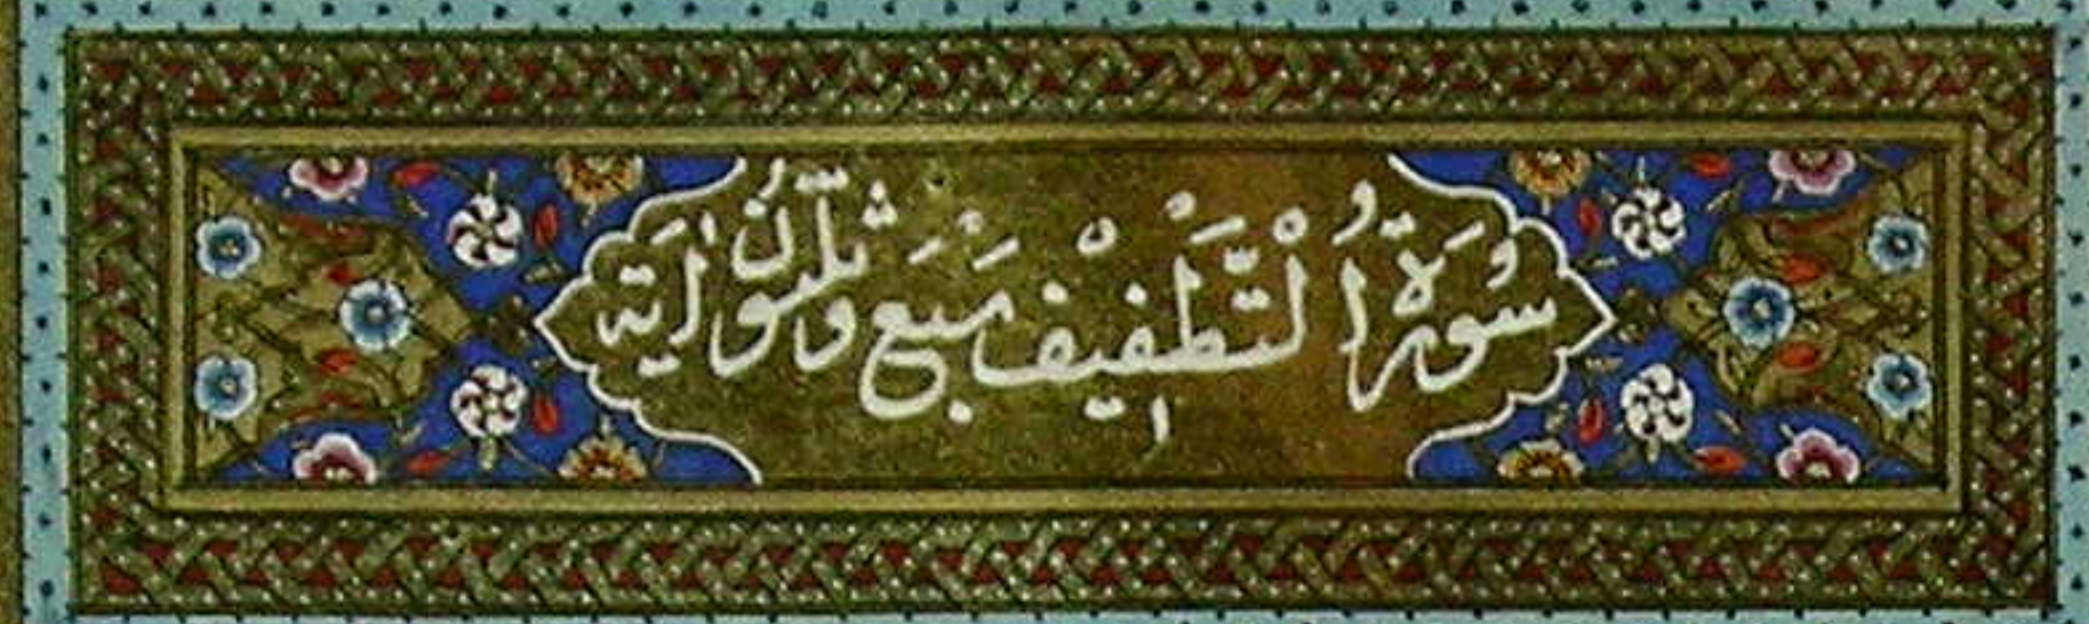 سُورَةُ الْتَّطْفِيفِ سَبْعَ وَثَلٰثُونَ اٰيَة